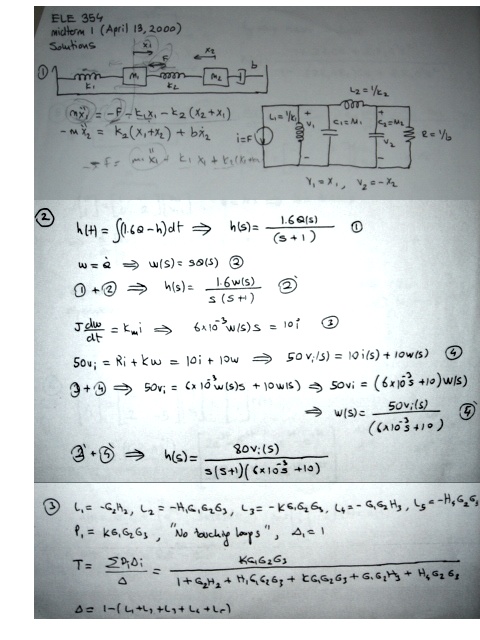 ELE 354
midterm 1 (April 13, 2000)
Solutions
x₁ x₂
① k₁ m₁ F k₂ m₂ b
mẍ₁ = -F - k₁x₁ - k₂(x₂+x₁)
-mẍ₂ = k₂(x₁+x₂) + bẋ₂
L₂ = 1/k₂
i=F L₁=1/k₁ V₁ C₁=M₁ C₂=M₂ V₂ R=1/b
V₁ = X₁, V₂ = -X₂
② h(t) = ∫(1.6Q-h)dt ⇒ h(s) = 1.6Q(s) / (s+1) ①
w = Q̇ ⇒ w(s) = sQ(s) ②
① + ② ⇒ h(s) = 1.6w(s) / s(s+1) ②'
J dw/dt = Kmi ⇒ 6x10⁻³ w(s)s = 10i ③
50vi = Ri + Kw = 10i + 10w ⇒ 50vi(s) = 10i(s) + 10w(s) ④
③ + ④ ⇒ 50vi = 6x10⁻³w(s)s + 10w(s) ⇒ 50vi = (6x10⁻³s+10)w(s)
⇒ w(s) = 50vi(s) / (6x10⁻³s+10) ④'
②' + ④' ⇒ h(s) = 80vi(s) / s(s+1)(6x10⁻³s+10)
③ L₁ = -G₂H₂, L₂ = -H₁G₁G₂G₃, L₃ = -KG₁G₂G₃, L₄ = -G₁G₂H₃, L₅ = -H₄G₂G₃
P₁ = KG₁G₂G₃, "No touching loops", Δ₁ = 1
T = ΣPiΔi / Δ = KG₁G₂G₃ / 1+G₂H₂ + H₁G₁G₂G₃ + KG₁G₂G₃ + G₁G₂H₃ + H₄G₂G₃
Δ = 1-(L₁+L₂+L₃+L₄+L₅)